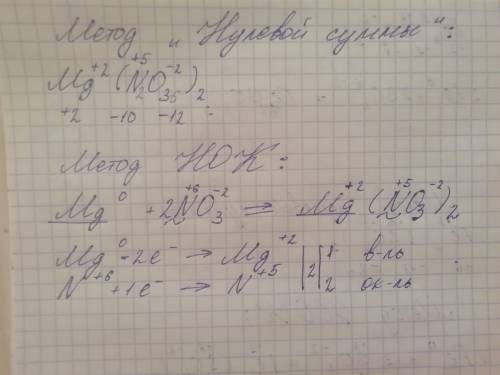 Метод „ Нулевой суммы ":
Mg⁺² (N⁺⁵₂O⁻²₃₆)₂
+2 -10 -12
Метод НОК:
Mg⁰ + 2N⁺⁶O₃⁻² = Mg⁺²(N⁺⁵O₃⁻²)₂
Mg⁰ -2e⁻ → Mg⁺² |2| 1 в-ль
N⁺⁶ +1e⁻ → N⁺⁵ | | 2 ок-ль